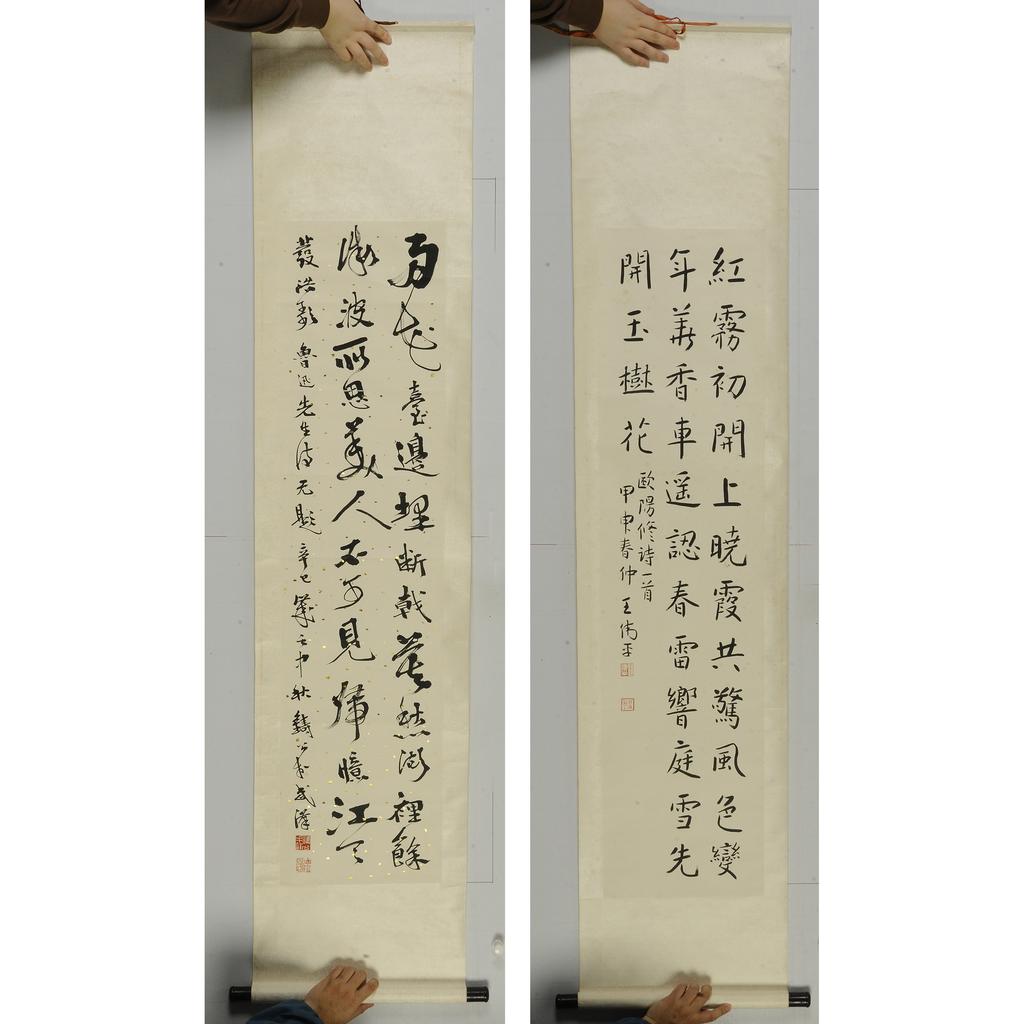 雨花臺邊埋断戟莫愁湖裡餘
微波所思美人不可見歸憶江天
發浩歌 魯迅先生诗无題 辛巳歲之中秋
紅霧初開上曉霞共驚風色變
年華香車遥認春雷響庭雪先
開玉樹花
歐陽修诗一首
甲申春仲王偉平